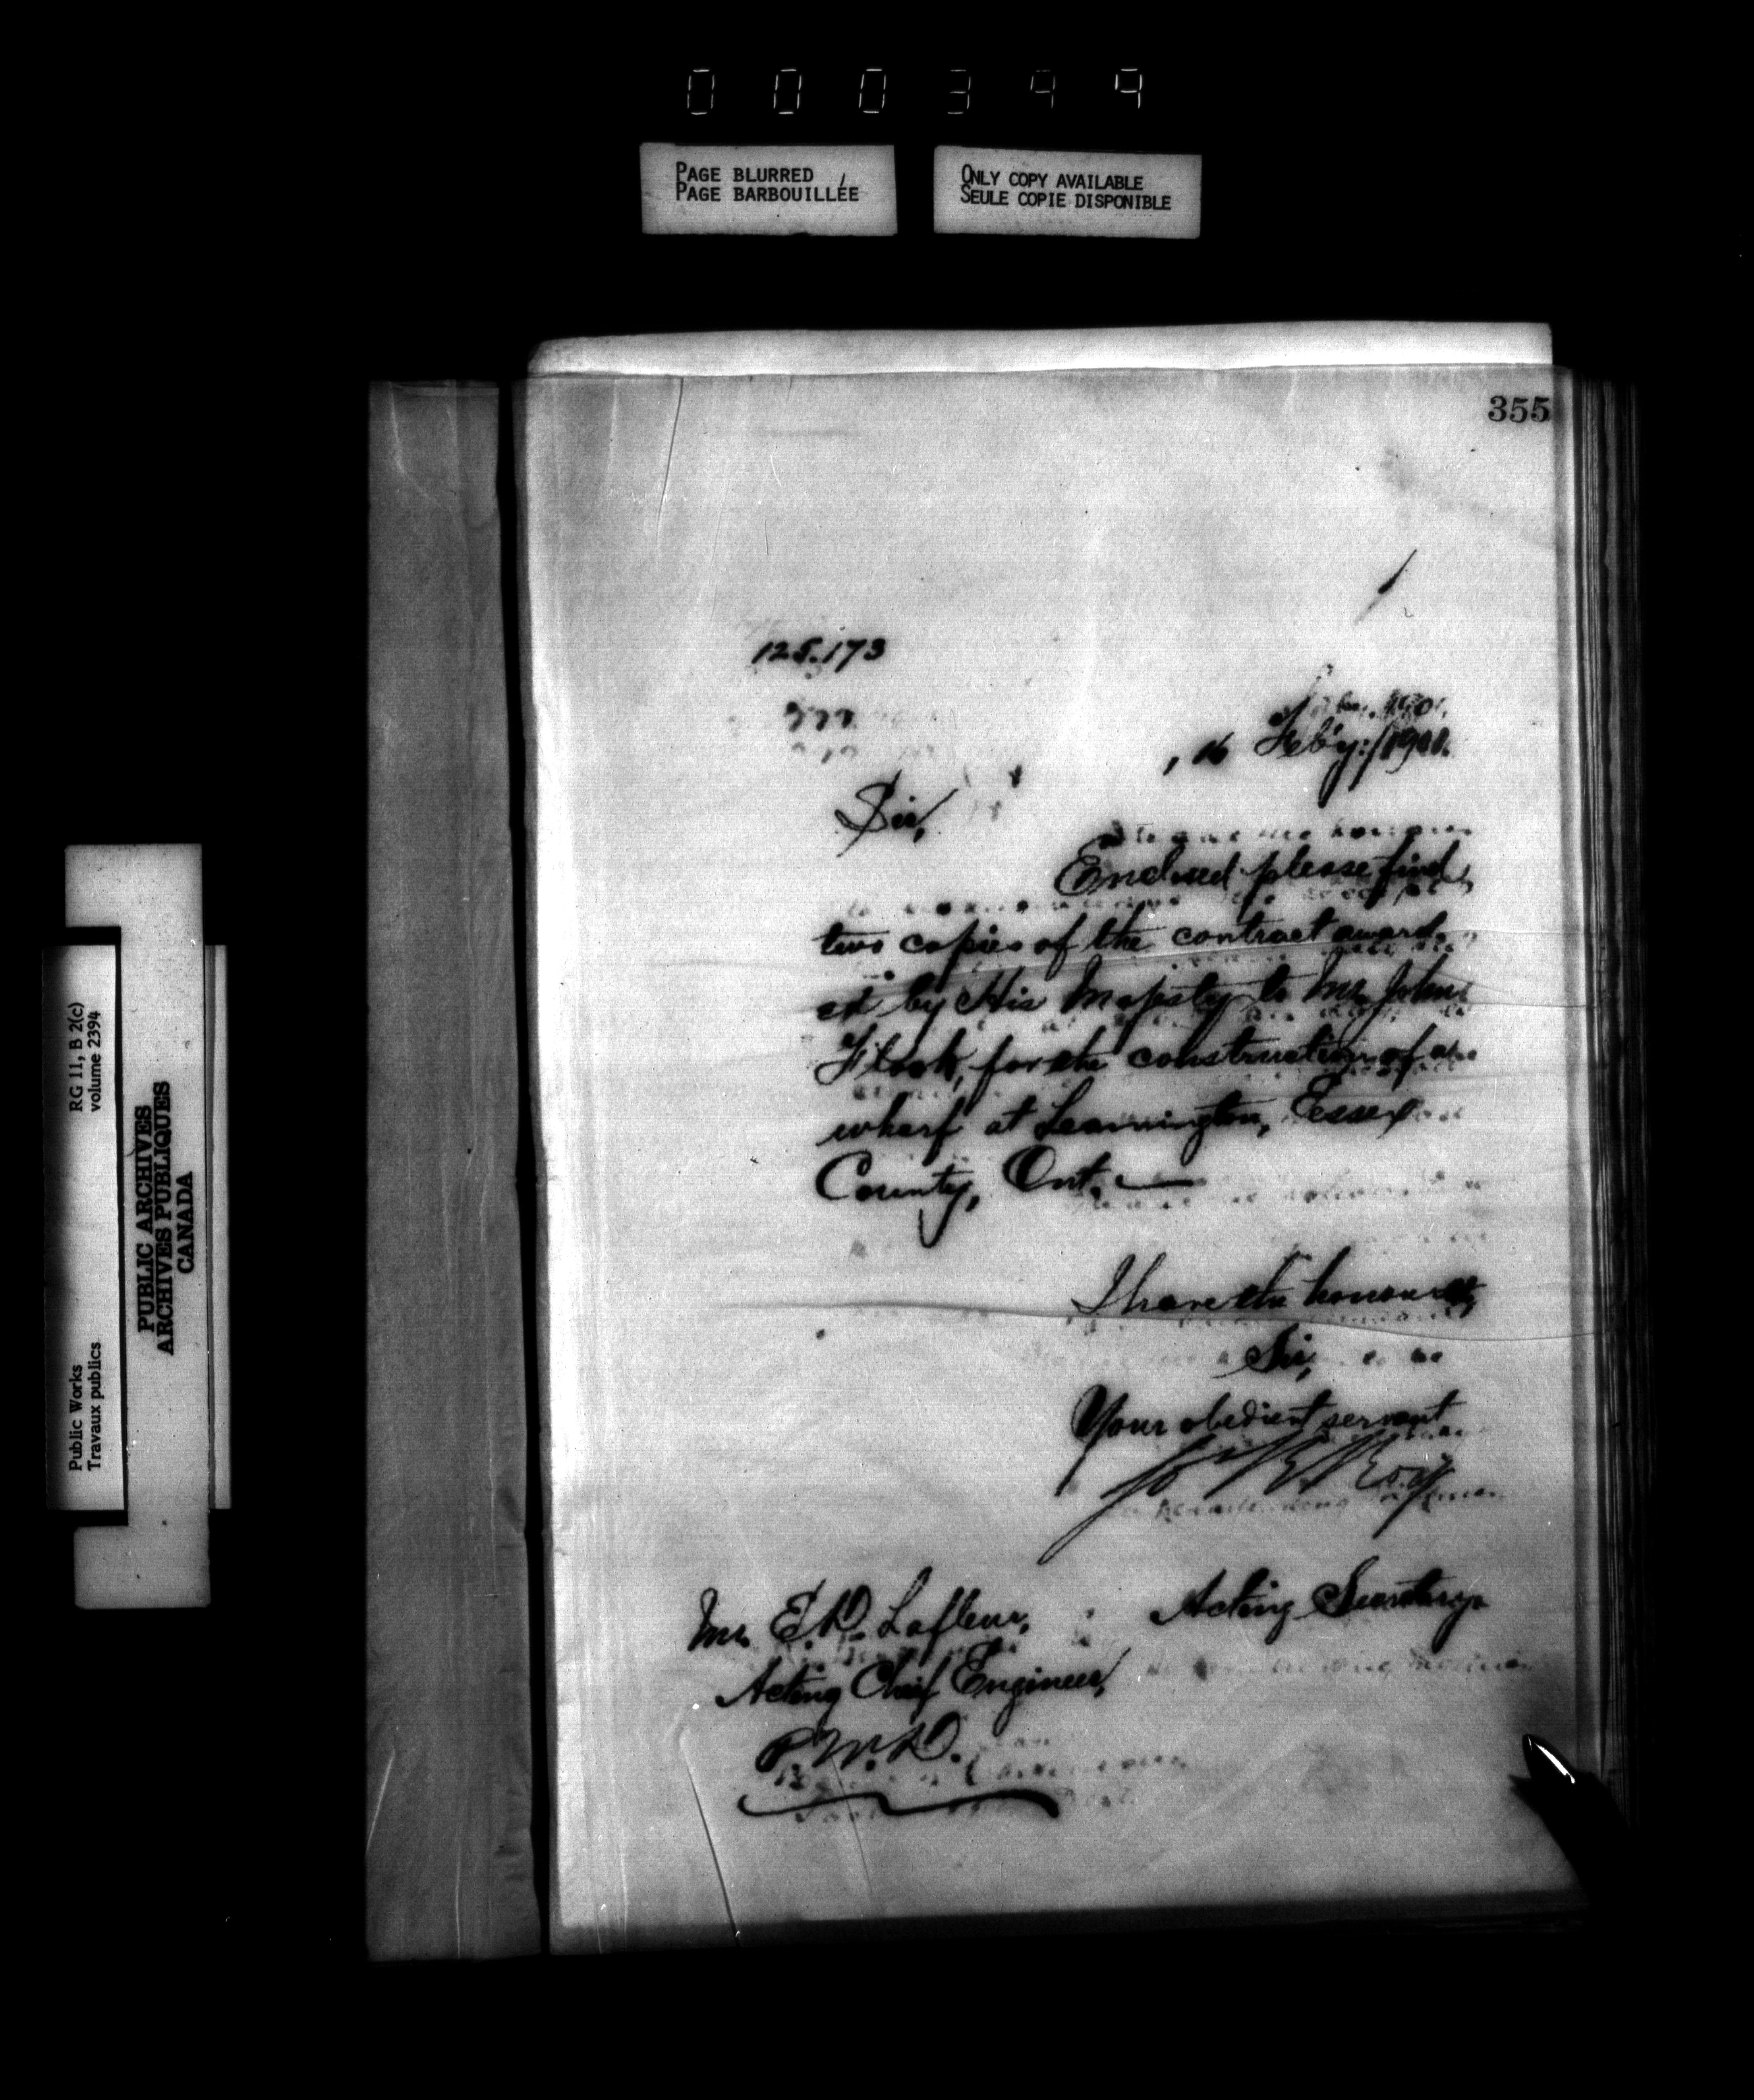 000399
PAGE BLURRED
PAGE BARBOUILLÉE
ONLY COPY AVAILABLE
SEULE COPIE DISPONIBLE
355
125.173
, 16 Feb'y:/1901.
Sir,
Enclosed please find
two copies of the contract award-
ed by His Majesty to Mr. John
Flook, for the construction of a
wharf at Leamington, Essex
County, Ont.—
I have the honour
Sir,
Your obedient servant
Roy
Acting Secretary
Mr. E.D. Lafleur,
Acting Chief Engineer,
P.W.D.
RG 11, B 2(c)
volume 2394
Public Works
Travaux publics
PUBLIC ARCHIVES
ARCHIVES PUBLIQUES
CANADA